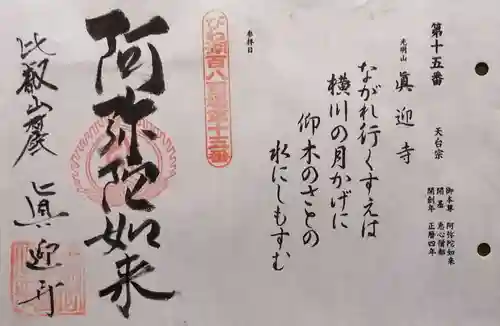 第十五番
光明山 眞迎寺
天台宗
御本尊 阿弥陀如来
開基 恵心僧都
開創年 正暦四年
ながれ行くすえは
横川の月かげに
仰木のさとの
水にしもすむ
参拝日
びわ湖百八霊場第十五番
阿弥陀如来
比叡山麓
眞迎寺